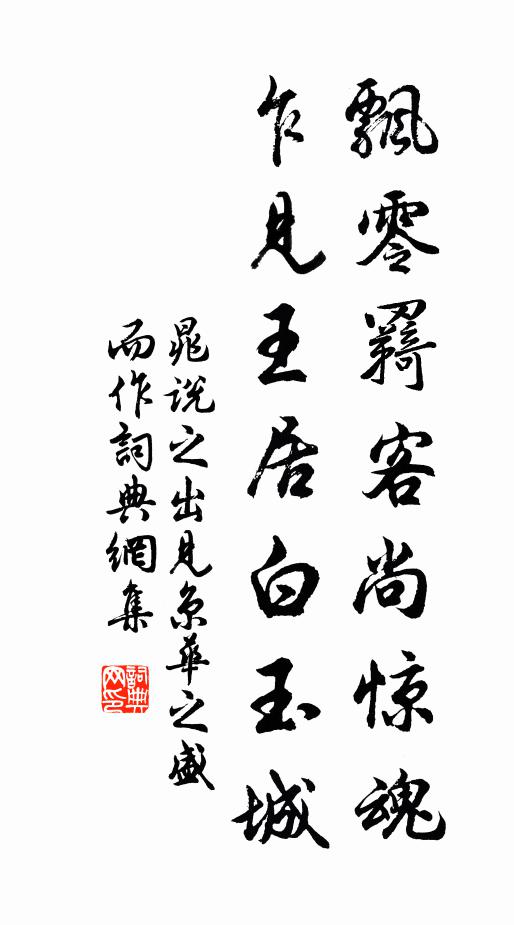 飄零羇客尚惊魂
乍見王居白玉城
晁説之出見京華之盛
而作詞典網集
詞典网印